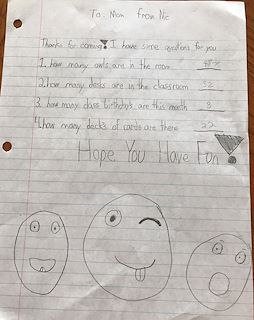 To: Mom From Nic
Thanks for coming! I have some questions for you
1. how many owls are in the room
2. how many desks are in the classroom 32
3. how many class birthdays are this month 3
4. how many decks of cards are there 22
Hope You Have Fun!